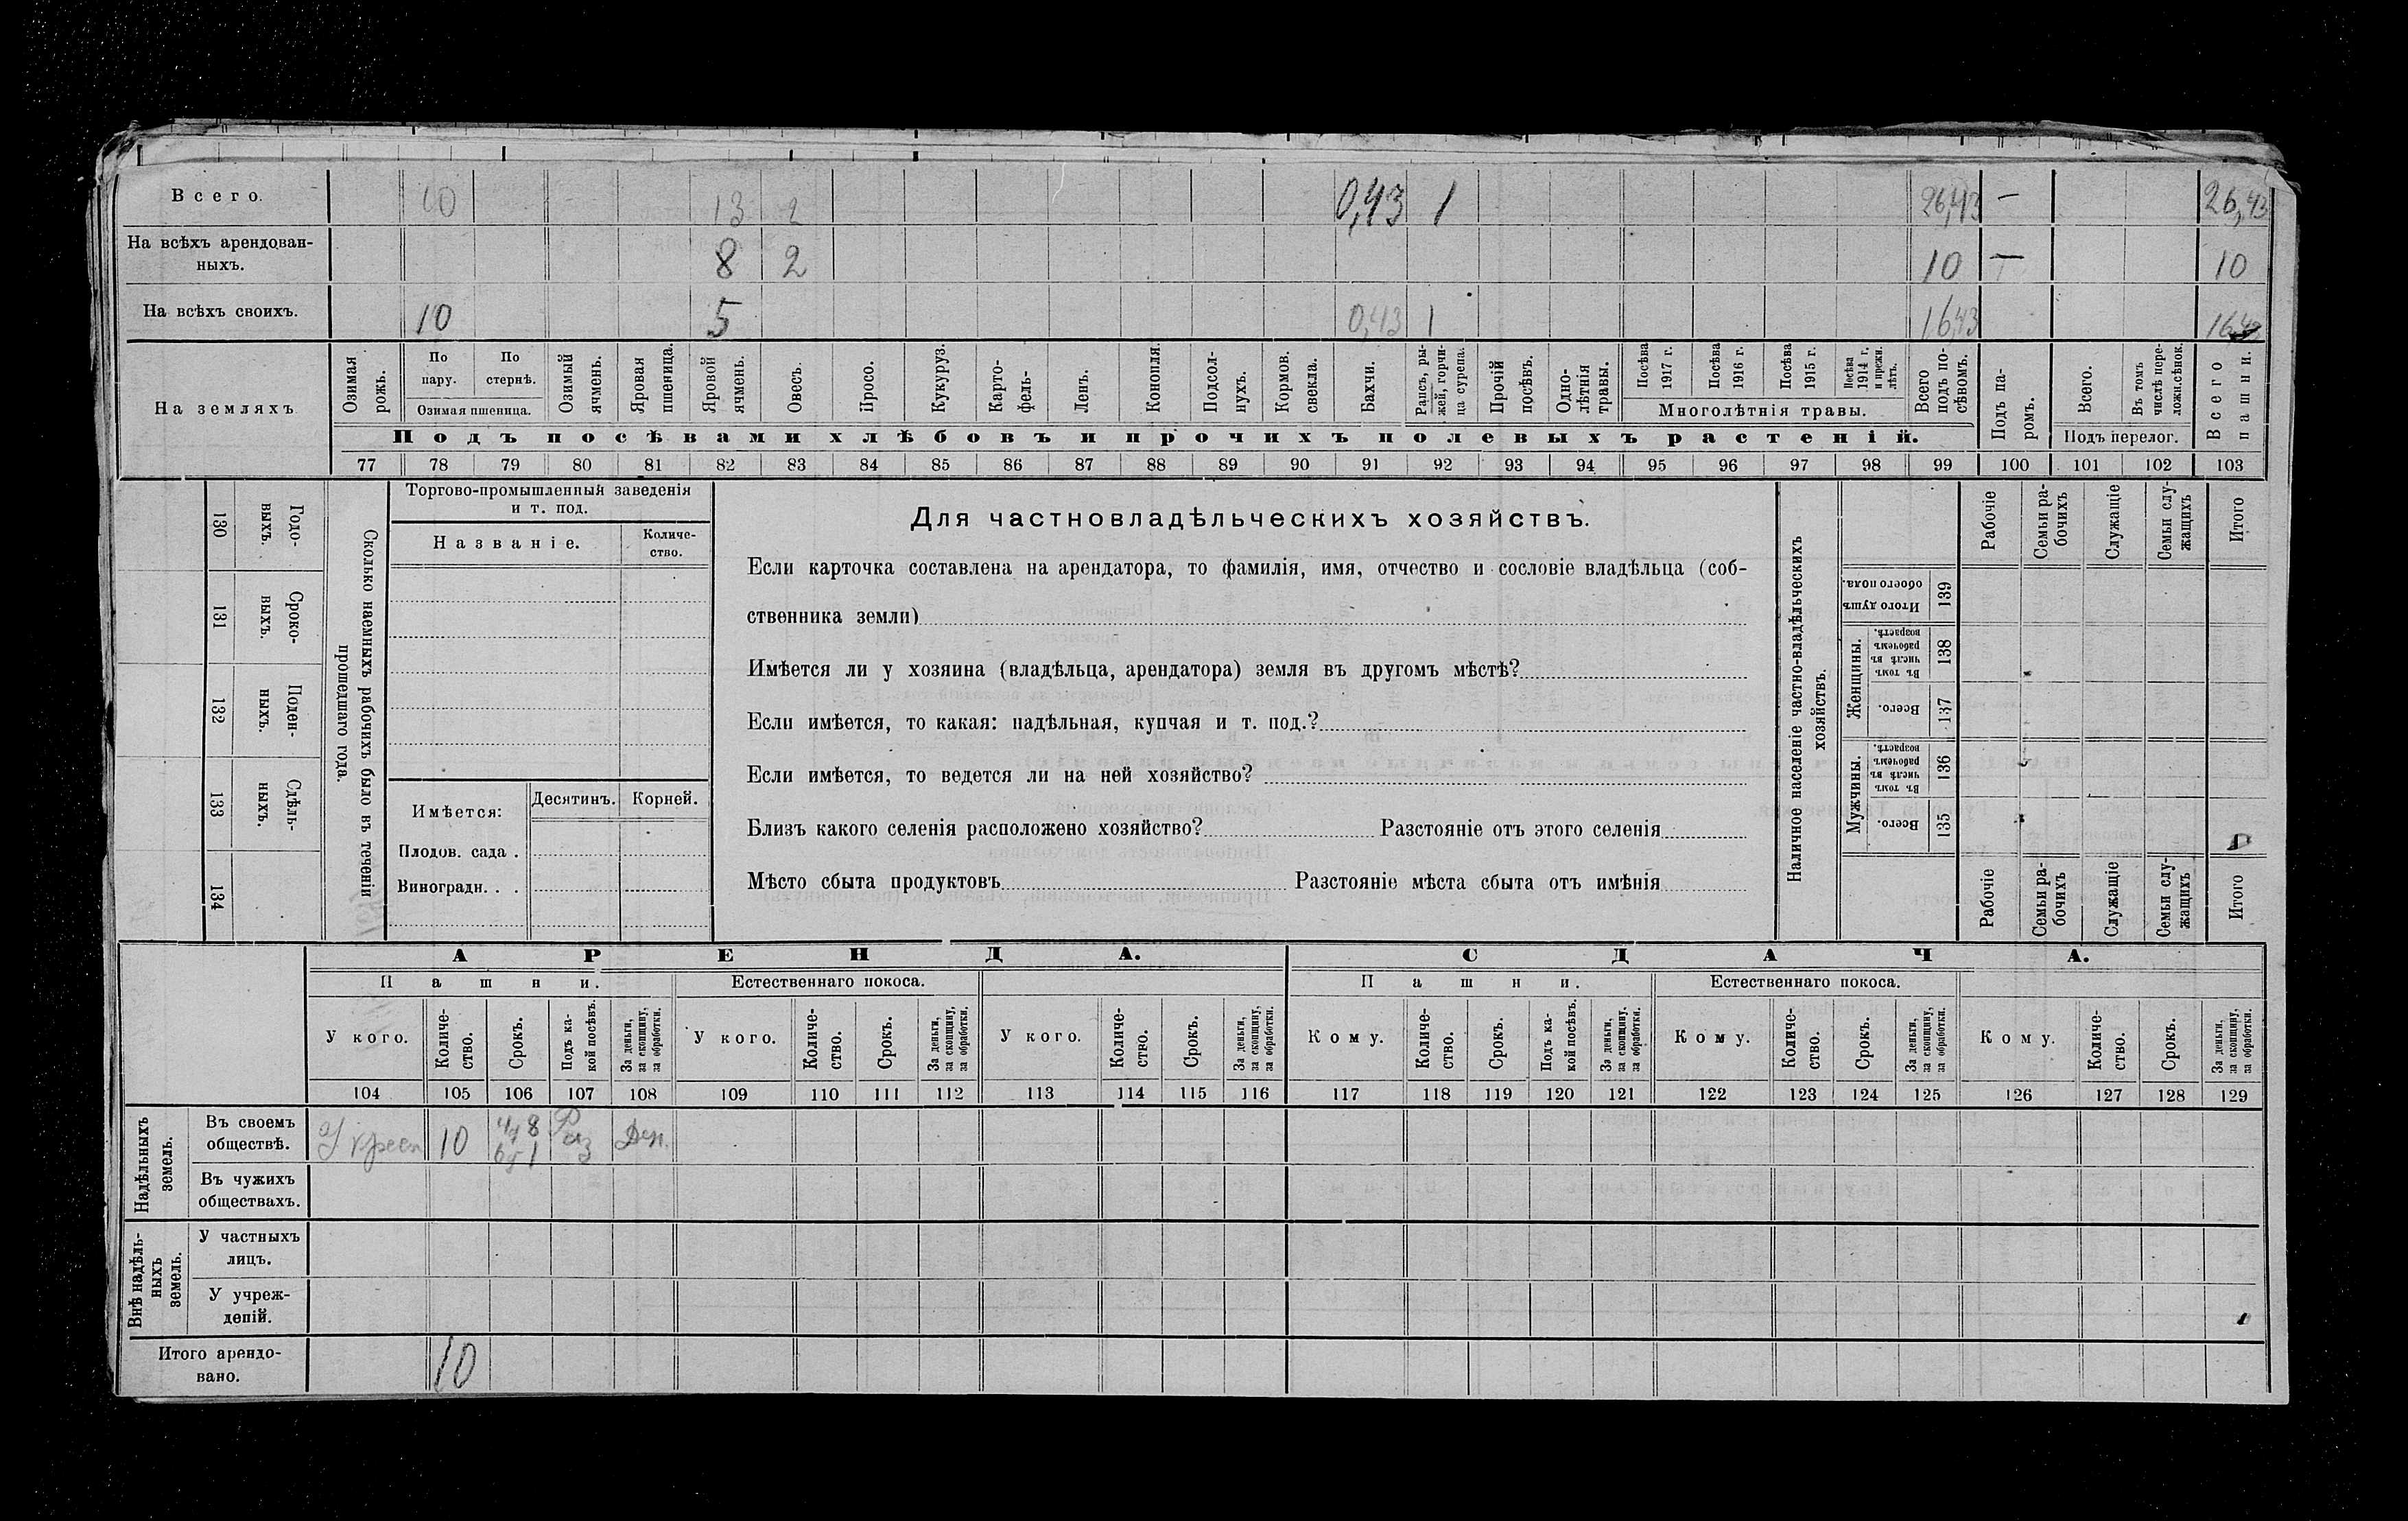 Всего. 10 13 2 0,43 1 26,43 — 26,43
На всѣхъ арендован-
ныхъ. 8 2 10 — 10
На всѣхъ своихъ. 10 5 0,43 1 16,43 16,43
На земляхъ
Озимая рожь.
По пару.
По стернѣ.
Озимая пшеница.
Озимый ячмень.
Яровая пшеница.
Яровой ячмень.
Овесъ.
Просо.
Кукуруз.
Карто-
фель-
Ленъ.
Конопля.
Подсол-
нухъ.
Кормов.
свекла.
Бахчи.
Рапсъ, ры-
жей, горчи-
ца сурепа.
Прочій
посѣвъ.
Одно-
лѣтнія
травы.
Посѣва
1917 г.
Посѣва
1916 г.
Посѣва
1915 г.
Посѣва
1914 г.
и прежн.
лѣтъ.
Многолѣтнія травы.
Всего
подъ по-
сѣвомъ.
Подъ па-
ромъ.
Всего.
Въ томъ
числѣ пере-
ложн.сѣнок.
Подъ перелог.
Всего
пашни.
Подъ посѣвами хлѣбовъ и прочихъ полевыхъ растеній.
77 78 79 80 81 82 83 84 85 86 87 88 89 90 91 92 93 94 95 96 97 98 99 100 101 102 103
Годо-
выхъ.
130
Сроко-
выхъ.
131
Поден-
ныхъ.
132
Сдѣль-
ныхъ.
133
134
Сколько наемныхъ рабочихъ было въ теченіи
прошедшаго года.
Торгово-промышленный заведенія
и т. под.
Названіе.
Количе-
ство.
Имѣется:
Десятинъ.
Корней.
Плодов. сада .
Виноградн. . .
Для частновладѣльческихъ хозяйствъ.
Если карточка составлена на арендатора, то фамилія, имя, отчество и сословіе владѣльца (соб-
ственника земли)
Имѣется ли у хозяина (владѣльца, арендатора) земля въ другомъ мѣстѣ?
Если имѣется, то какая: надѣльная, купчая и т. под.?
Если имѣется, то ведется ли на ней хозяйство?
Близъ какого селенія расположено хозяйство? Разстояніе отъ этого селенія
Мѣсто сбыта продуктовъ Разстояніе мѣста сбыта отъ имѣнія
Наличное населеніе частно-владѣльческихъ
хозяйствъ.
Итого душъ
обоего пола.
139
Женщины.
Въ томъ
числѣ въ
рабочемъ
возрастѣ.
138
Всего.
137
Мужчины.
Въ томъ
числѣ въ
рабочемъ
возрастѣ.
136
Всего.
135
Рабочіе
Семьи ра-
бочихъ
Служащіе
Семьи слу-
жащихъ
Итого
Рабочіе
Семьи ра-
бочихъ
Служащіе
Семьи слу-
жащихъ
Итого
АРЕНДА.
СДАЧА.
Пашни.
Естественнаго покоса.
Пашни.
Естественнаго покоса.
У кого.
Количе-
ство.
Срокъ.
Подъ ка-
кой посѣвъ.
За деньги,
за скопщину,
за обработки.
У кого.
Количе-
ство.
Срокъ.
За деньги,
за скопщину,
за обработки.
У кого.
Количе-
ство.
Срокъ.
За деньги,
за скопщину,
за обработки.
Кому.
Количе-
ство.
Срокъ.
Подъ ка-
кой посѣвъ.
За деньги,
за скопщину,
за обработки.
Кому.
Количе-
ство.
Срокъ.
За деньги,
за скопщину,
за обработки.
Кому.
Количе-
ство.
Срокъ.
За деньги,
за скопщину,
за обработки.
104 105 106 107 108 109 110 111 112 113 114 115 116 117 118 119 120 121 122 123 124 125 126 127 128 129
Надѣльныхъ
земель.
Въ своемъ
обществѣ. У крест 10 Ден.
Въ чужихъ
обществахъ.
Внѣ надѣль-
ныхъ
земель.
У частныхъ
лицъ.
У учреж-
деній.
Итого арендо-
вано. 10